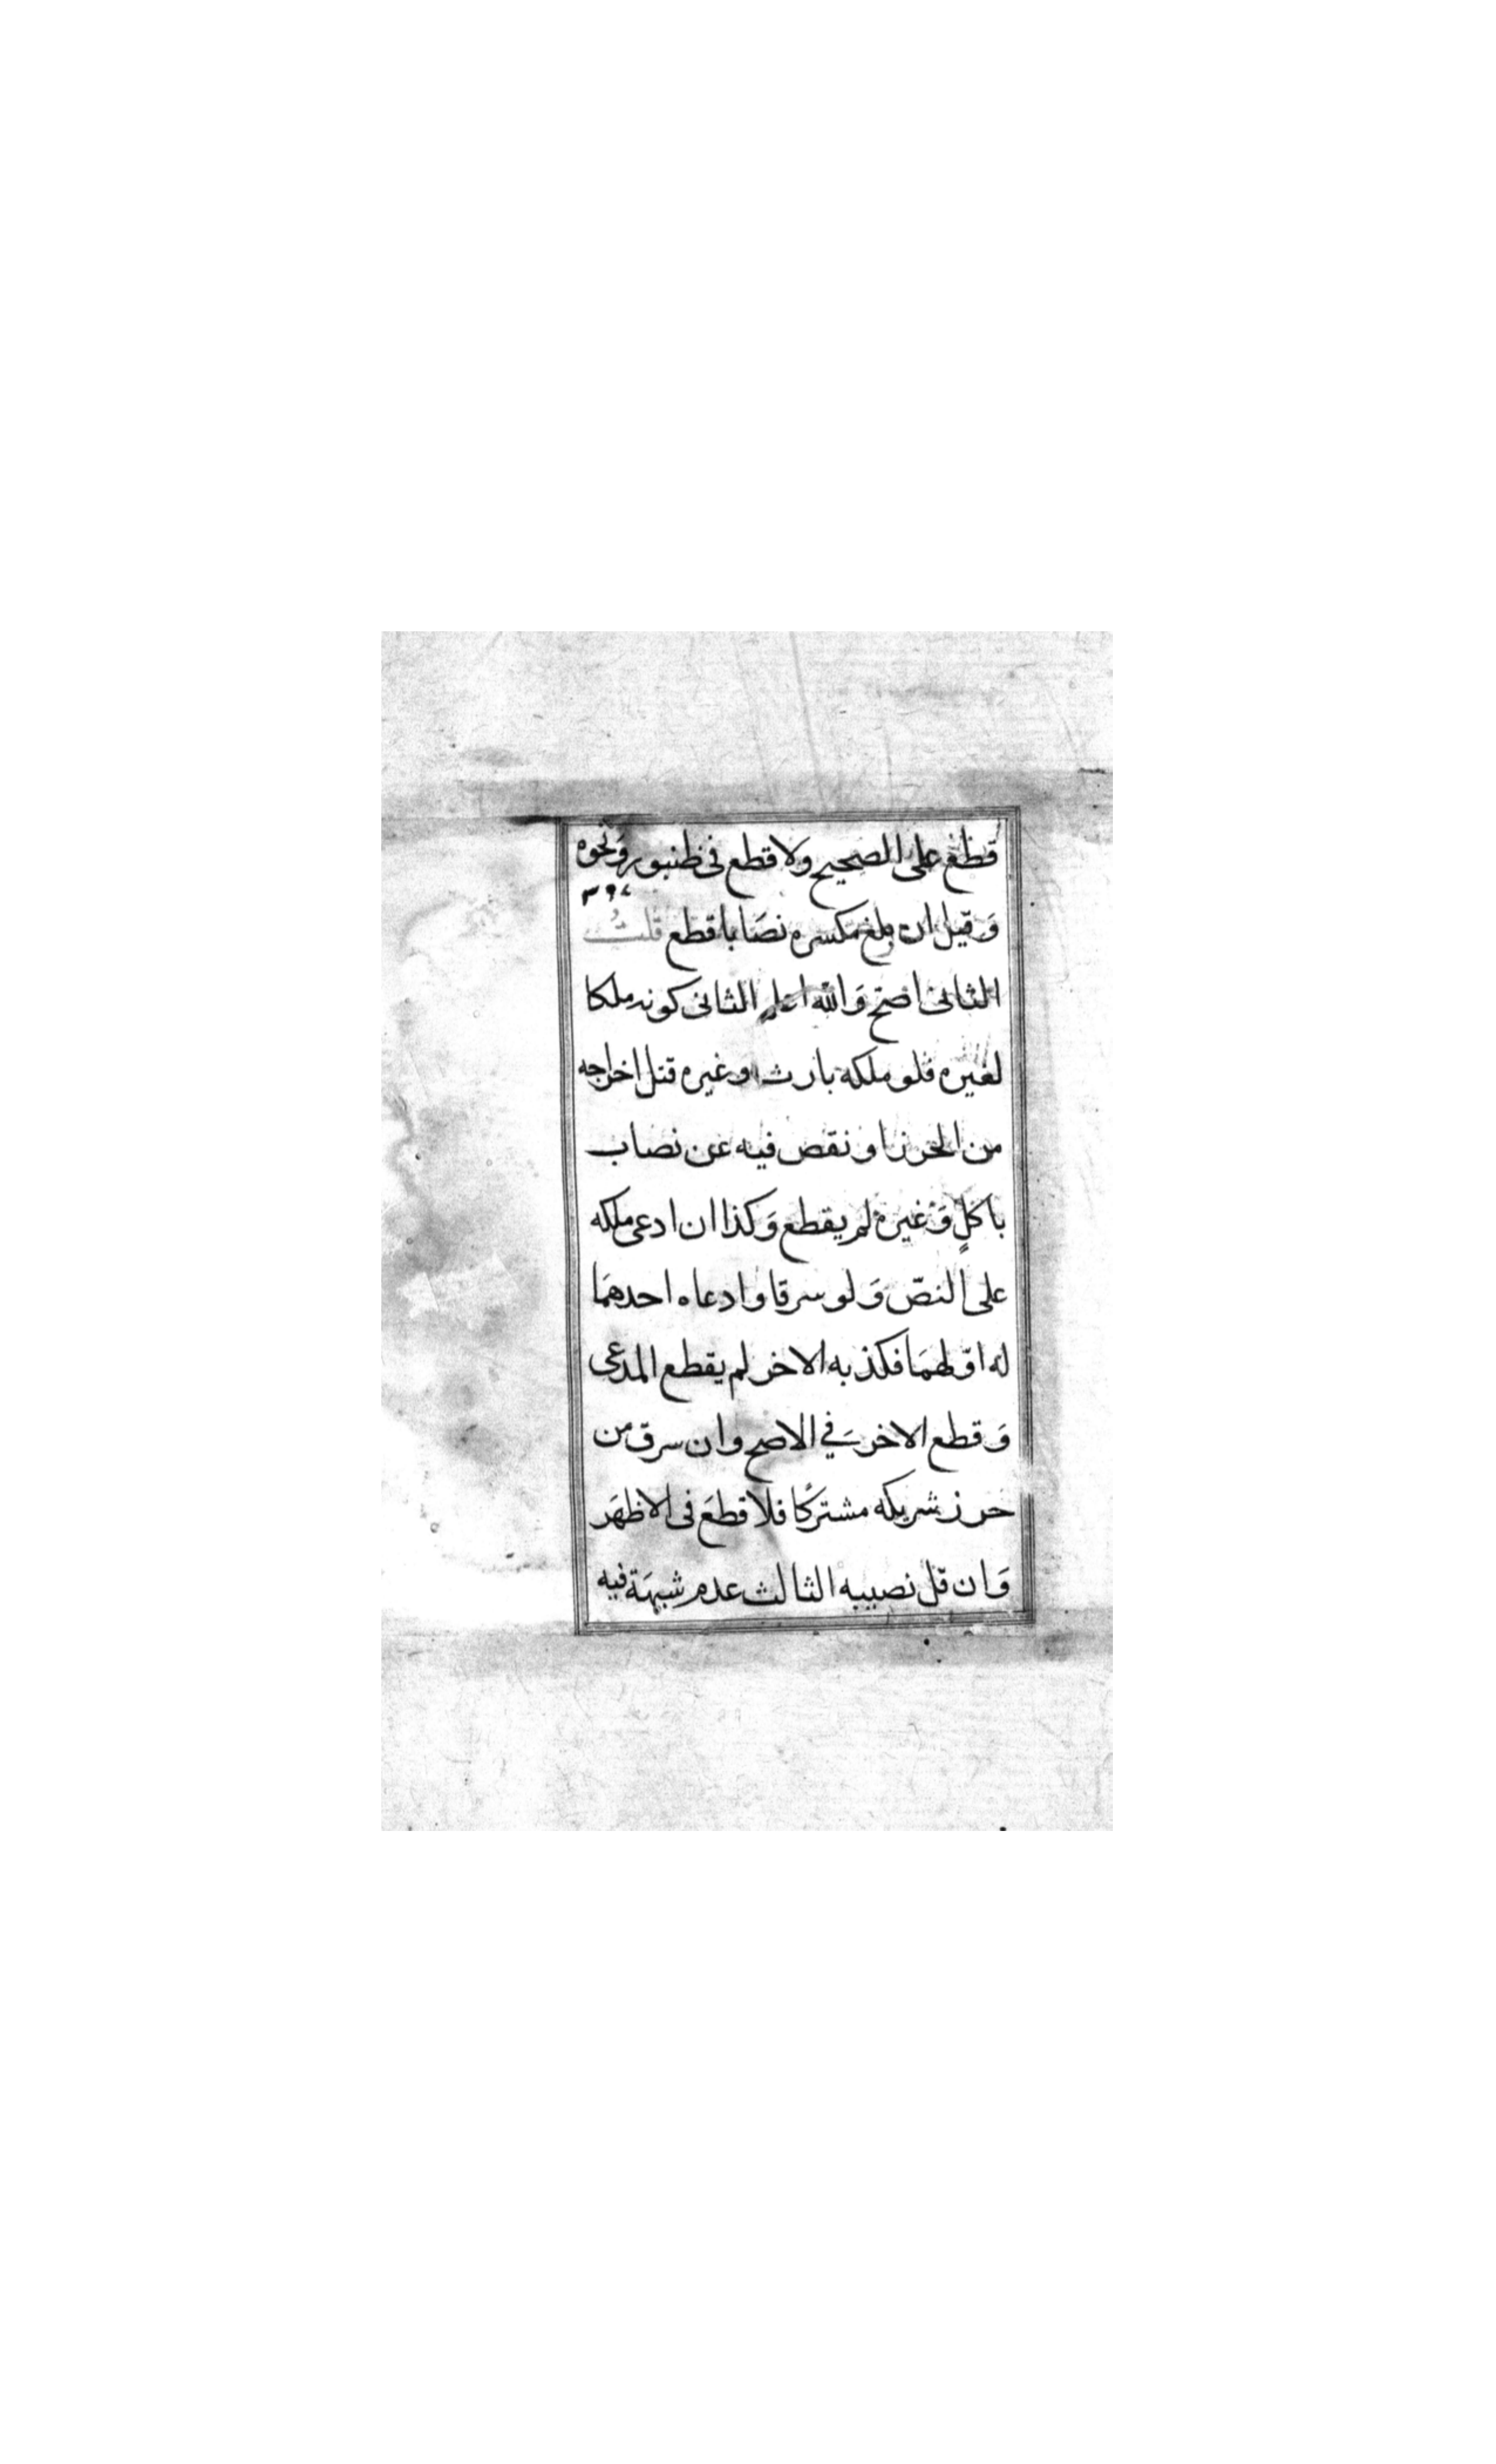 قطع على الصحيح ولا قطع فى طنبور ونحوه
وَقيل ان بلغ مكسره نصَابا قطع قلتُ
الثانى اصح وَالله اعلم الثانى كونه ملكا
لغيره فلو ملكه بارث او غيره قبل اخراجه
من الحرز او نقص فيه عن نصاب
باكلٍ وَغيره لم يقطع وَكذا ان ادعى ملكه
على النصّ وَلو سرقا وادعاه احدهمَا
له اوّ لهمَا فكذبه الاخر لم يقطع المدعى
وَقطع الاخر في الاصح وان سرق من
حرز شريكه مشتركًا فلا قطعَ فى الاظهَر
وَان قلّ نصيبه الثالث عدم شبهَة فيه